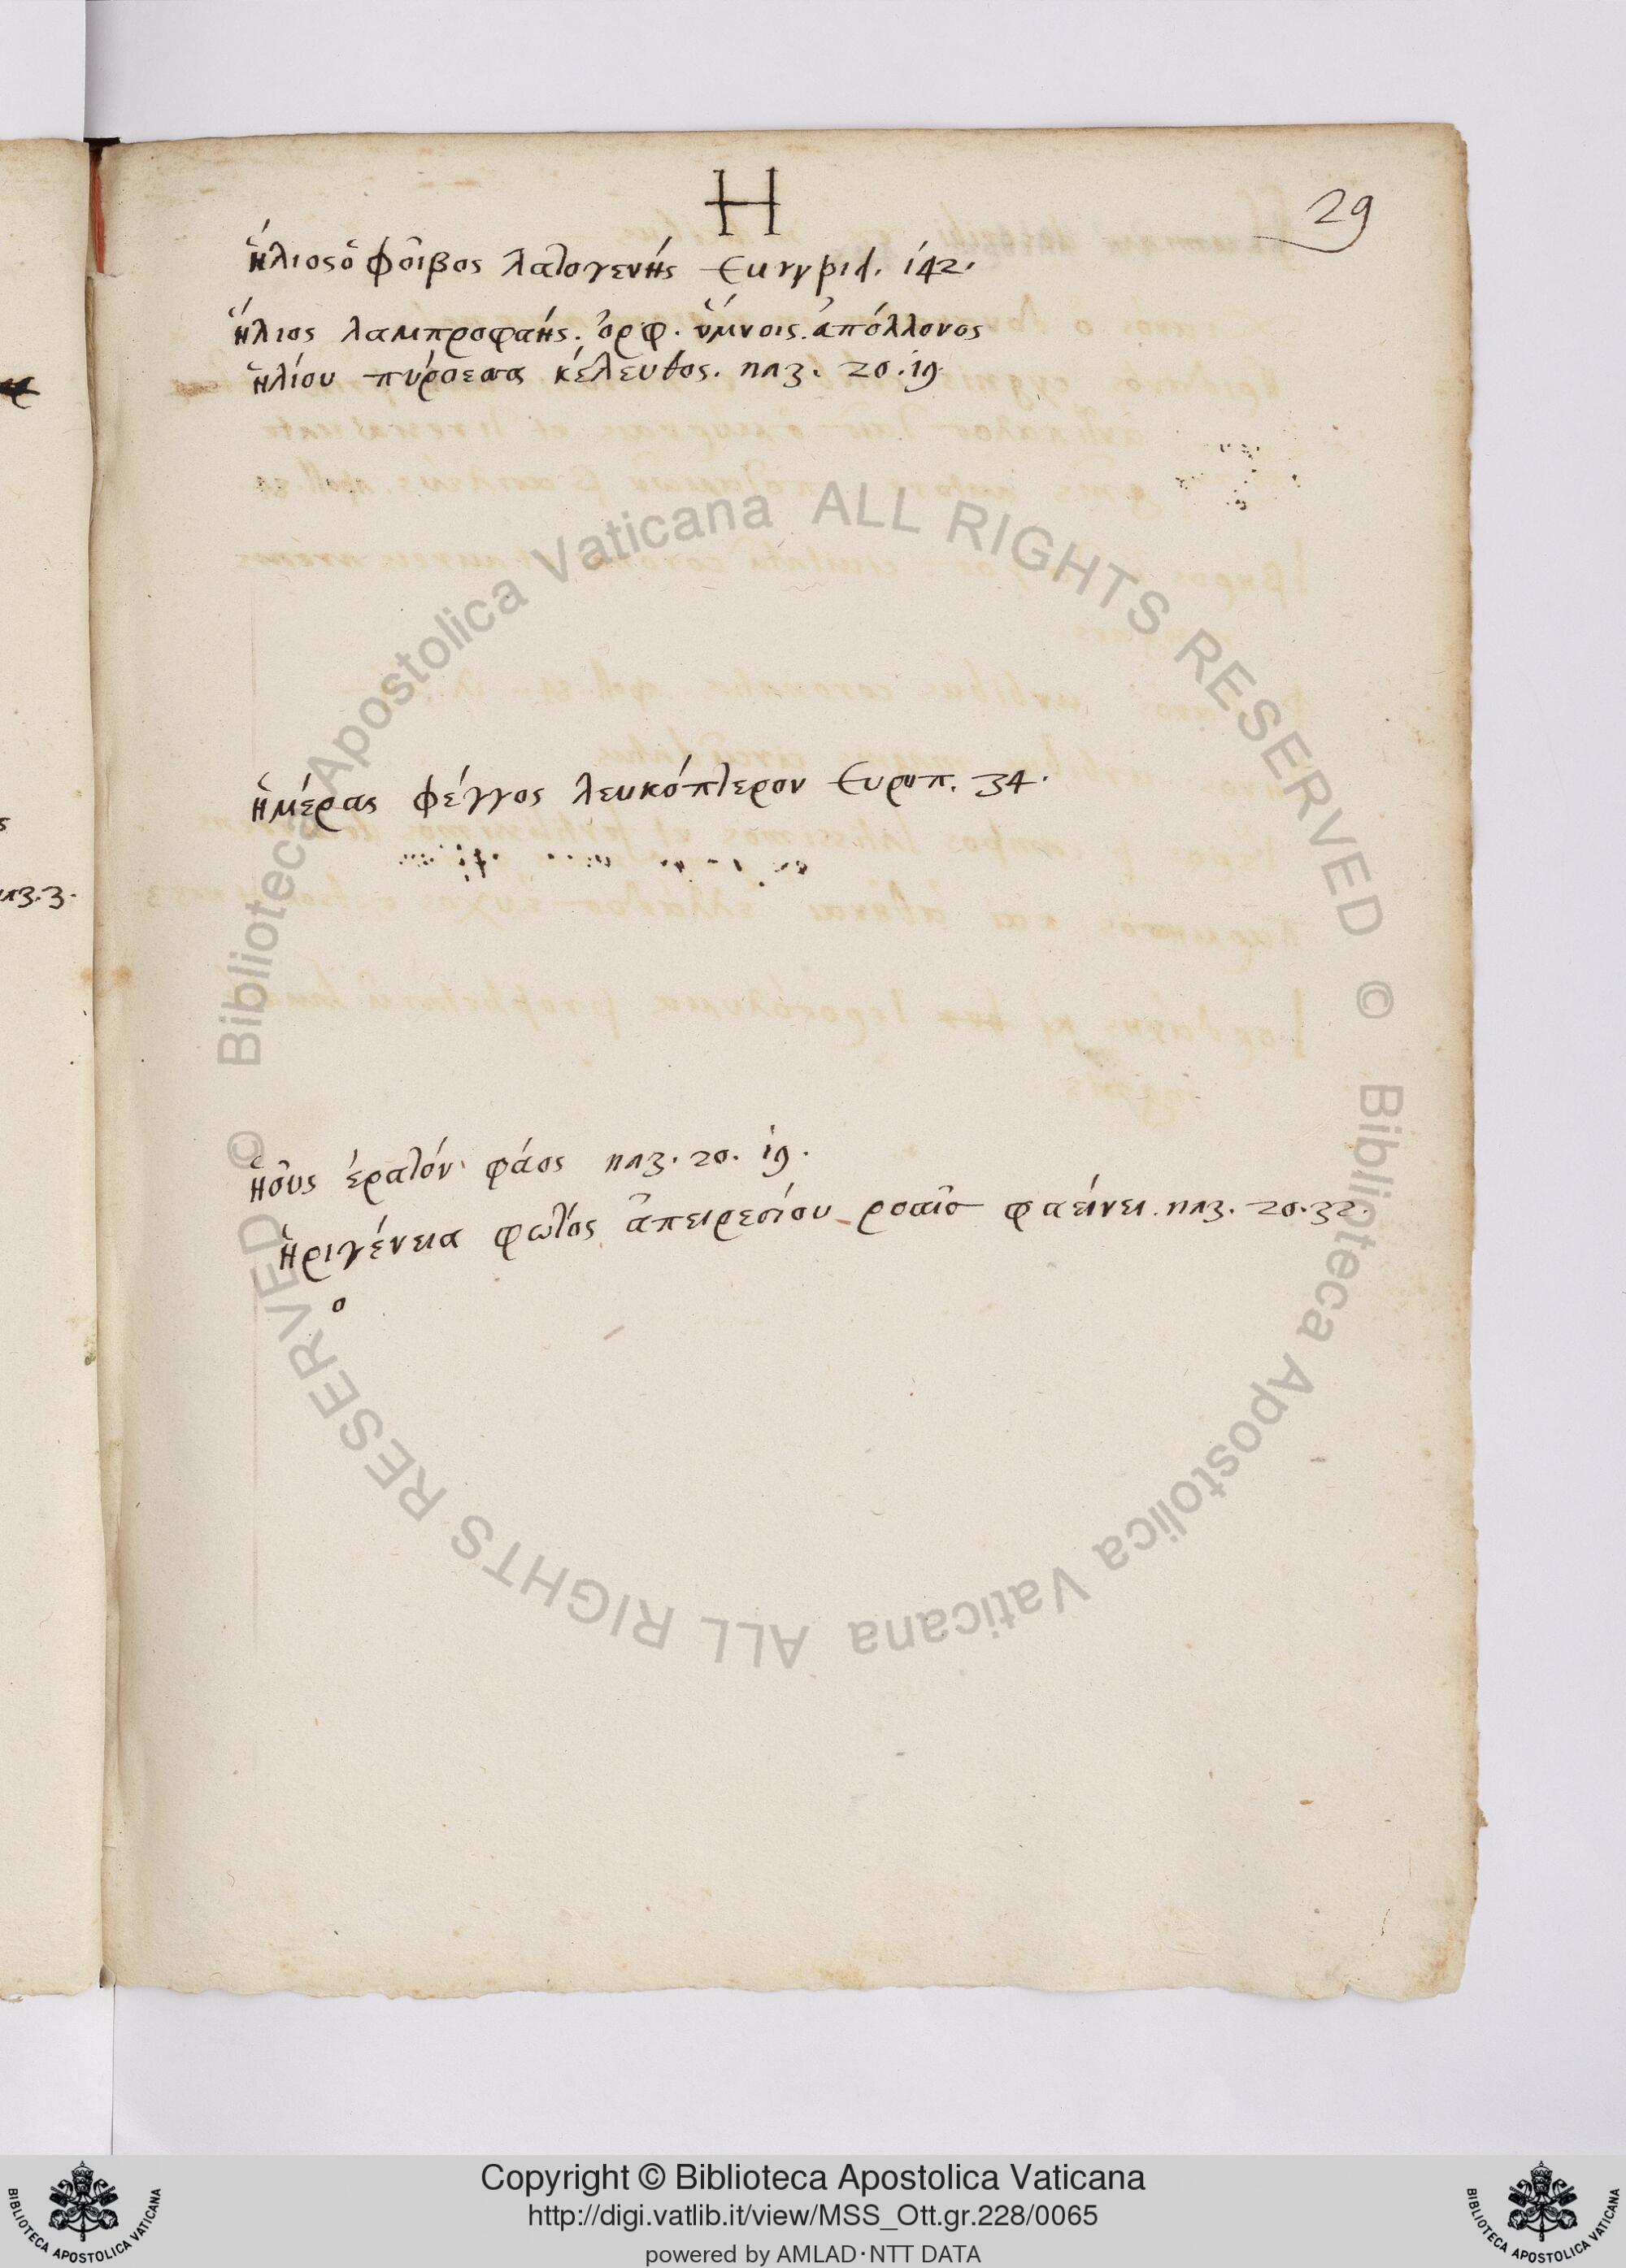 H
29
ἥλιος ὁ φοῖβος λατογενής Eurypid. 142.
ἥλιος λαμπροφαής. ὀρφ. ὕμνοις. ἀπόλλονος
ἡλίου πυρόεσσα κέλευθος. naz. 20. 19.
ἡμέρας φέγγος λευκόπτερον Ευριπ. 34.
naz. 3.
ἠοῦς ἐρατόν φάος naz. 20. 19.
ἠριγένεια φωτός ἀπειρεσίου ροαῖσ φαείνει. naz. 20. 32.
© Biblioteca Apostolica Vaticana ALL RIGHTS RESERVED
© Biblioteca Apostolica Vaticana ALL RIGHTS RESERVED
Copyright © Biblioteca Apostolica Vaticana
http://digi.vatlib.it/view/MSS_Ott.gr.228/0065
powered by AMLAD·NTT DATA
BIBLIOTECA APOSTOLICA VATICANA
BIBLIOTECA APOSTOLICA VATICANA